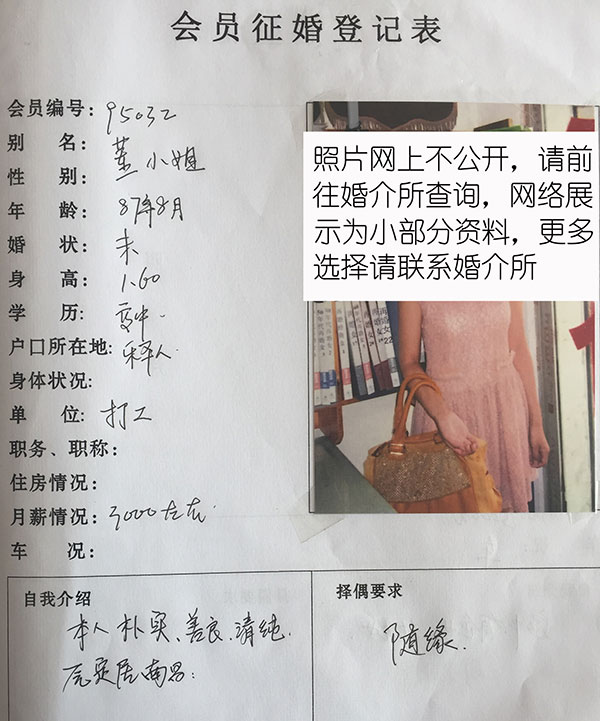 会员征婚登记表
会员编号：95032
别 名：董小姐
性 别：
年 龄：87年8月
婚 状：未
身 高：1.60
学 历：高中.
户口所在地：
身体状况：
单 位：打工
职务、职称：
住房情况：
月薪情况：3000左右
车 况：
照片网上不公开，请前
往婚介所查询，网络展
示为小部分资料，更多
选择请联系婚介所
自我介绍
本人朴实、善良、清纯.
定居南昌.
择偶要求
随缘.